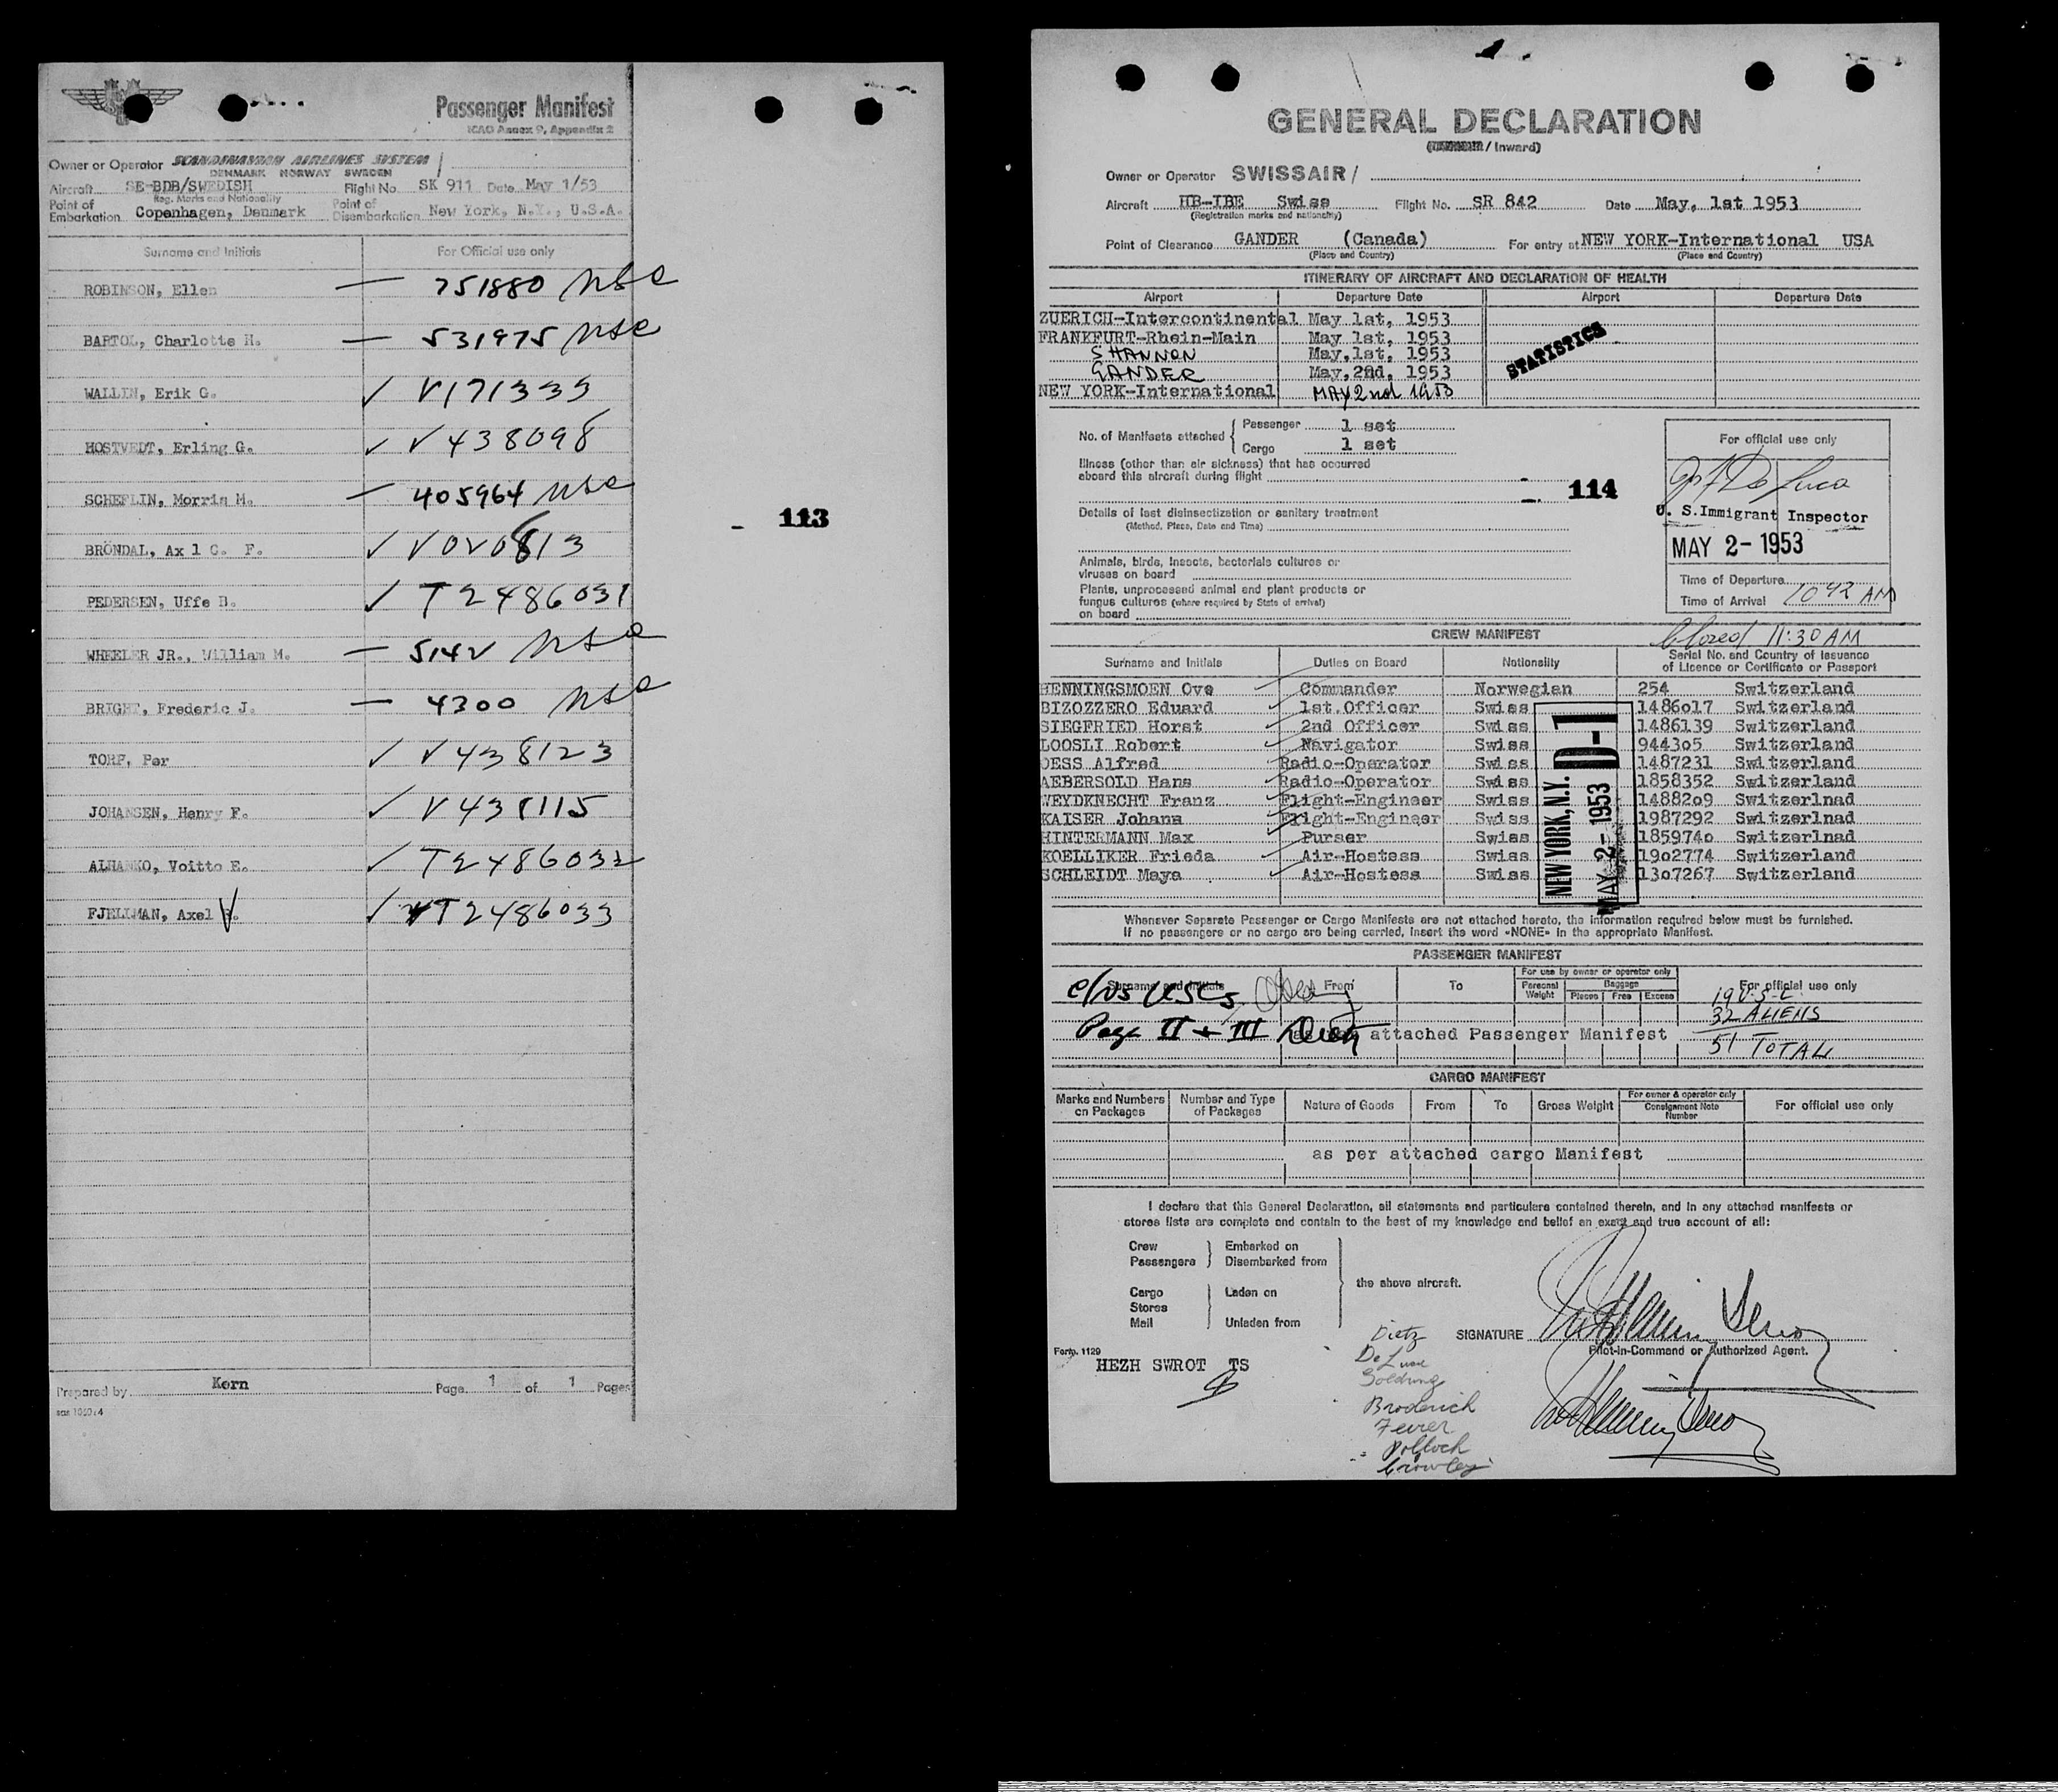 Passenger Manifest
ICAO Annex 9, Appendix 2
Owner or Operator SCANDINAVIAN AIRLINES SYSTEM
DENMARK NORWAY SWEDEN
Aircraft SE-BDB/SWEDISH Flight No. SK 911 Date May 1/53
Reg. Marks and Nationality
Point of Embarkation Copenhagen, Denmark Point of Disembarkation New York, N.Y., U.S.A.
Surname and Initials For Official use only
ROBINSON, Ellen — 751880 usc
BARTOL, Charlotte H. — 531975 usc
WALLIN, Erik G. ✓ V171335
HOSTVEDT, Erling G. ✓ V438098
SCHEFLIN, Morris M. — 405964 usc
BRÖNDAL, Ax l C. F. ✓ V020813
PEDERSEN, Uffe B. ✓ T2486031
WHEELER JR., William M. — 5142 usc
BRIGHT, Frederic J. — 4300 usc
TORP, Per ✓ V438123
JOHANSEN, Henry F. ✓ V438115
ALHANKO, Voitto E. ✓ T2486032
FJELLMAN, Axel V. ✓ T2486033
113
Prepared by Korn Page 1 of 1 Pages
GENERAL DECLARATION
/ Inward)
Owner or Operator SWISSAIR /
Aircraft HB-IBE Swiss Flight No. SR 842 Date May, 1st 1953
(Registration marks and nationality)
Point of Clearance GANDER (Canada) For entry at NEW YORK-International USA
(Place and Country) (Place and Country)
ITINERARY OF AIRCRAFT AND DECLARATION OF HEALTH
Airport Departure Date Airport Departure Date
ZUERICH-Intercontinental May 1st, 1953
FRANKFURT-Rhein-Main May 1st, 1953
SHANNON May, 1st, 1953
GANDER May, 2nd, 1953
NEW YORK-International MAY 2nd 1953
STATISTICS
No. of Manifests attached { Passenger 1 set
Cargo 1 set
Illness (other than air sickness) that has occurred
aboard this aircraft during flight
Details of last disinsectization or sanitary treatment
(Method, Place, Date and Time)
Animals, birds, insects, bacterials cultures or
viruses on board
Plants, unprocessed animal and plant products or
fungus cultures (where required by State of arrival)
on board
114
For official use only
U. S. Immigrant Inspector
MAY 2 - 1953
Time of Departure
Time of Arrival 10 42 AM
CREW MANIFEST
Closed 11:30 AM
Surname and Initials Duties on Board Nationality Serial No. and Country of Issuance
of Licence or Certificate or Passport
HENNINGSMOEN Ove Commander Norwegian 254 Switzerland
BIZOZZERO Eduard 1st.Officer Swiss 1486o17 Switzerland
SIEGFRIED Horst 2nd Officer Swiss 1486139 Switzerland
LOOSLI Robert Navigator Swiss 9443o5 Switzerland
OESS Alfred Radio-Operator Swiss 1487231 Switzerland
AEBERSOLD Hans Radio-Operator Swiss 1858352 Switzerland
WEYDKNECHT Franz Flight-Engineer Swiss 14882o9 Switzerlnad
KAISER Johann Flight-Engineer Swiss 1987292 Switzerlnad
HINTERMANN Max Purser Swiss 185974o Switzerlnad
KOELLIKER Frieda Air-Hostess Swiss 19o2774 Switzerland
SCHLEIDT Maya Air-Hostess Swiss 13o7267 Switzerland
NEW YORK, N.Y. D-1
MAY 2 - 1953
Whenever Separate Passenger or Cargo Manifests are not attached hereto, the information required below must be furnished.
If no passengers or no cargo are being carried, insert the word «NONE» in the appropriate Manifest.
PASSENGER MANIFEST
Surname and Initials From To For use by owner or operator only For official use only
Personal Weight Baggage Pieces Free Excess
USCs
19 U.S.C.
32 ALIENS
Page II + III attached Passenger Manifest
51 TOTAL
CARGO MANIFEST
Marks and Numbers on Packages Number and Type of Packages Nature of Goods From To Gross Weight For owner & operator only Consignment Note Number For official use only
as per attached cargo Manifest
I declare that this General Declaration, all statements and particulars contained therein, and in any attached manifests or
stores lists are complete and contain to the best of my knowledge and belief an exact and true account of all:
Crew Passengers } Embarked on Disembarked from
Cargo Stores Mail } Laden on Unladen from
the above aircraft.
SIGNATURE
Pilot-in-Command or Authorized Agent.
Form. 1129
HEZH SWROT TS
Dietz
De Luca
Soldung
Broderick
Feuer
Pollock
Crowley